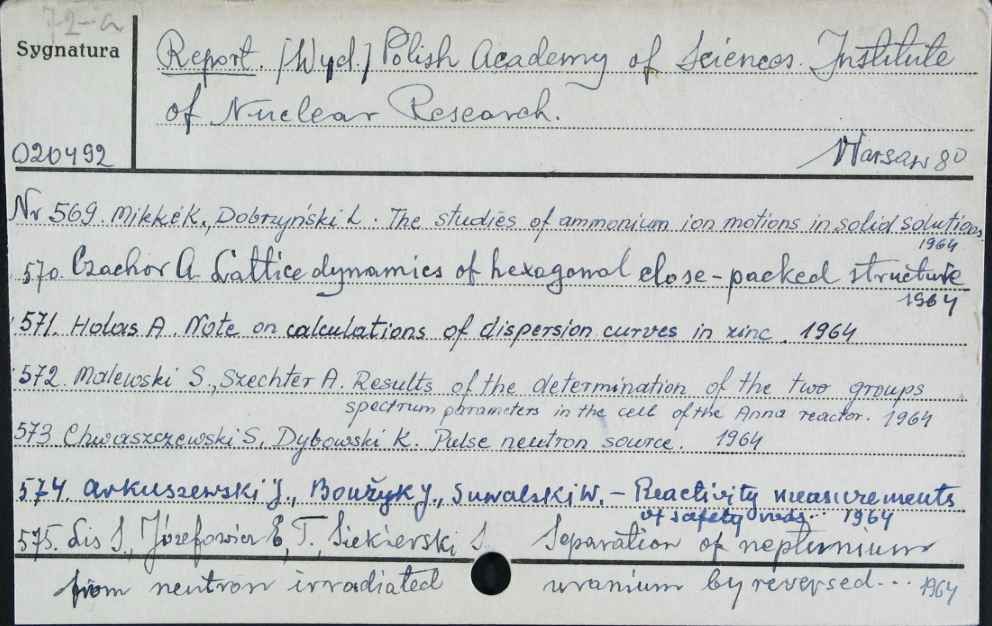 72-a
Sygnatura
Report. [Wyd.] Polish Academy of Sciences. Institute
of Nuclear Research.
020492
Warsaw 80
Nr 569. Mikke K., Dobrzyński L. The studies of ammonium ion motions in solid solutions
1964
570. Czachor A. Lattice dynamics of hexagonal close-packed structure
1964
571. Holas A. Note on calculations of dispersion curves in zinc. 1964
572. Malewski S., Szechter A. Results of the determination of the two groups
spectrum parameters in the cell of the Anna reactor. 1964
573 Chwaszczewski S., Dybowski K. Pulse neutron source. 1964
574 Arkuszewski J., Boużyk J., Suwalski W. - Reactivity measurements
of safety rods... 1964
575. Lis S., Józefowicz E, T., Siekierski S. Separation of neptunium
from neutron irradiated uranium by reversed... 1964